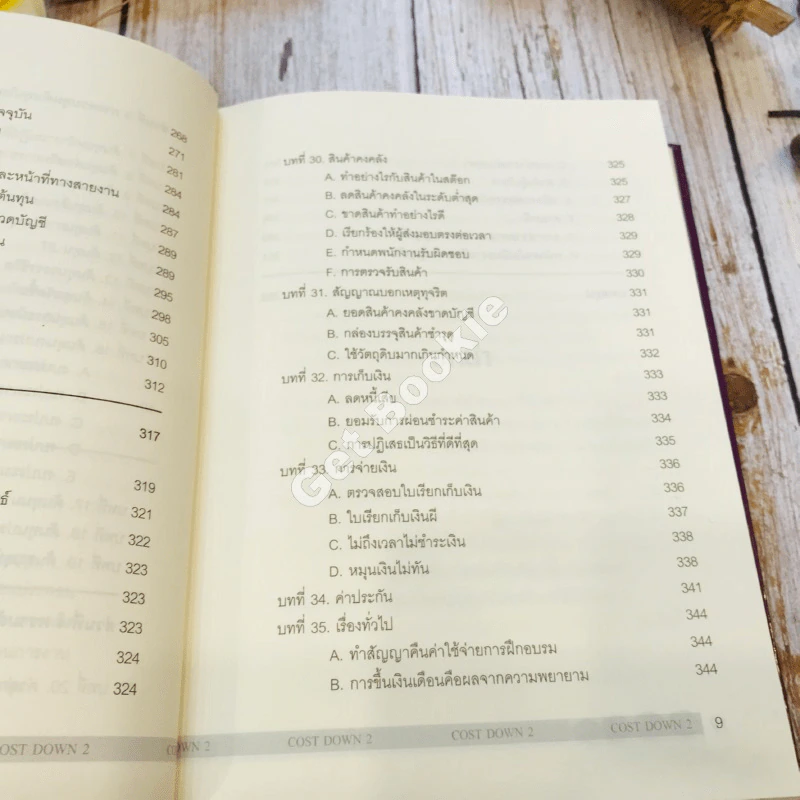 จจุบัน
268
271
281
ละหน้าที่ทางสายงาน 284
ต้นทุน 284
วดบัญชี 287
น 289
289
295
298
305
310
312
317
319
ธ์ 321
322
323
323
323
324
324
COST DOWN 2
บทที่ 30. สินค้าคงคลัง 325
A. ทำอย่างไรกับสินค้าในสต๊อก 325
B. ลดสินค้าคงคลังในระดับต่ำสุด 327
C. ขาดสินค้าทำอย่างไรดี 328
D. เรียกร้องให้ผู้ส่งมอบตรงต่อเวลา 329
E. กำหนดพนักงานรับผิดชอบ 329
F. การตรวจรับสินค้า 330
บทที่ 31. สัญญาณบอกเหตุทุจริต 331
A. ยอดสินค้าคงคลังขาดบัญชี 331
B. กล่องบรรจุสินค้าชำรุด 331
C. ใช้วัตถุดิบมากเกินกำหนด 332
บทที่ 32. การเก็บเงิน 333
A. ลดหนี้เสีย 333
B. ยอมรับการผ่อนชำระค่าสินค้า 334
C. การปฏิเสธเป็นวิธีที่ดีที่สุด 335
บทที่ 33. การจ่ายเงิน 336
A. ตรวจสอบใบเรียกเก็บเงิน 336
B. ใบเรียกเก็บเงินผี 337
C. ไม่ถึงเวลาไม่ชำระเงิน 338
D. หมุนเงินไม่ทัน 338
บทที่ 34. ค่าประกัน 341
บทที่ 35. เรื่องทั่วไป 344
A. ทำสัญญาคืนค่าใช้จ่ายการฝึกอบรม 344
B. การขึ้นเงินเดือนคือผลจากความพยายาม 344
COST DOWN 2 COST DOWN 2 COST DOWN 2 COST DOWN 2 9
Get Bookie